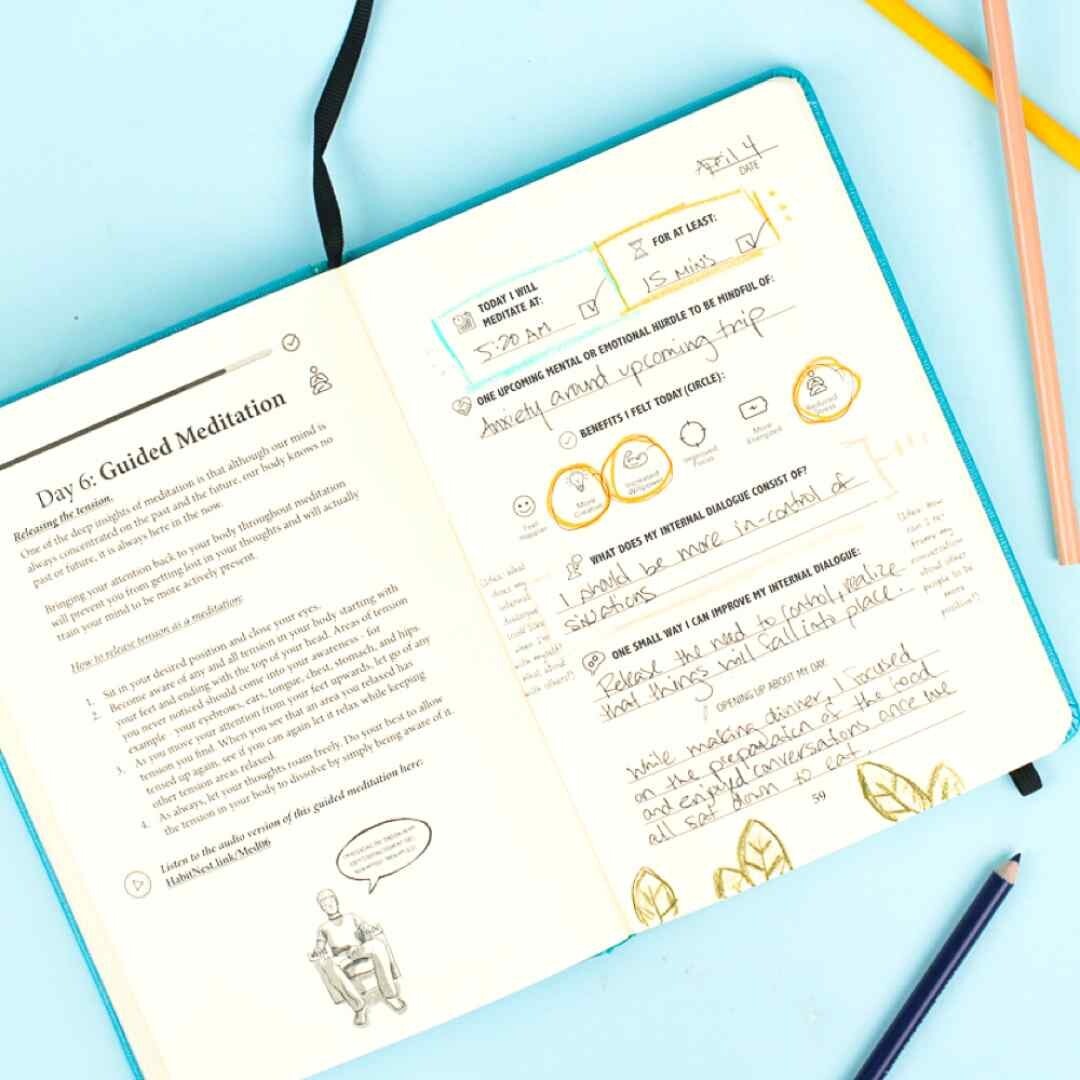 Day 6: Guided Meditation
Releasing the tension.
One of the deep insights of meditation is that although our mind is
always concentrated on the past and the future, our body knows no
past or future, it is always here in the now.
Bringing your attention back to your body throughout meditation
will prevent you from getting lost in your thoughts and will actually
train your mind to be more actively present.
How to release tension as a meditation:
1. Sit in your desired position and close your eyes.
2. Become aware of any and all tension in your body starting with
your feet and ending with the top of your head. Areas of tension
you never noticed should come into your awareness - for
example - your eyebrows, ears, tongue, chest, stomach, and hips.
3. As you move your attention from your feet upwards, let go of any
tension you find. When you see that an area you relaxed has
tensed up again, see if you can again let it relax while keeping
other tension areas relaxed.
4. As always, let your thoughts roam freely. Do your best to allow
the tension in your body to dissolve by simply being aware of it.
Listen to the audio version of this guided meditation here:
HabitNest.link/Med06
April 4
DATE
TODAY I WILL
MEDITATE AT:
5:20 AM
FOR AT LEAST:
15 MINS
ONE UPCOMING MENTAL OR EMOTIONAL HURDLE TO BE MINDFUL OF:
Anxiety around upcoming trip
BENEFITS I FELT TODAY (CIRCLE):
Feel
Happier
More
Creative
Increased
Willpower
Improved
Focus
More
Energized
Reduced
Stress
WHAT DOES MY INTERNAL DIALOGUE CONSIST OF?
I should be more in-control of
situations
(Idea: what
does my
internal
dialogue
look like
when I'm
with myself?
what about
with others?)
ONE SMALL WAY I CAN IMPROVE MY INTERNAL DIALOGUE:
Release the need to control, realize
that things will fall into place.
(Idea: how
can I re-
frame my
conversation
about other
people to be
more
positive?)
OPENING UP ABOUT MY DAY:
While making dinner, I focused
on the preparation of the food
and enjoyed conversations once we
all sat down to eat.
59